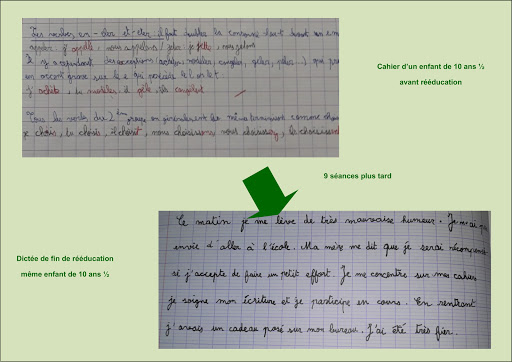 Les verbes en -eler et -eter il faut doubler la consonne
appeler j'appelle, nous appelons / jeter : je jette, nous jetons
Il y a cependant des exceptions (acheter, modeler, congeler, geler, peler...) qui
un accent grave sur le e qui précède le l et le t.
j'achète, tu modèles, il gèle, ils congèlent
Tous les verbes du 2ème groupe ont les même terminaisons comme
je choisis, tu choisis, il choisit, nous choisissons, vous choisissez, ils choisissent
Cahier d'un enfant de 10 ans ½
avant rééducation
9 séances plus tard
Dictée de fin de rééducation
même enfant de 10 ans ½
Ce matin je me lève de très mauvaise humeur. Je n'ai pas
envie d'aller à l'école. Ma mère me dit que je serai récompensé
si j'accepte de faire un petit effort. Je me concentre sur mes cahiers
je soigne mon écriture et je participe en cours. En rentrant
j'avais un cadeau posé sur mon bureau. J'ai été très fier.